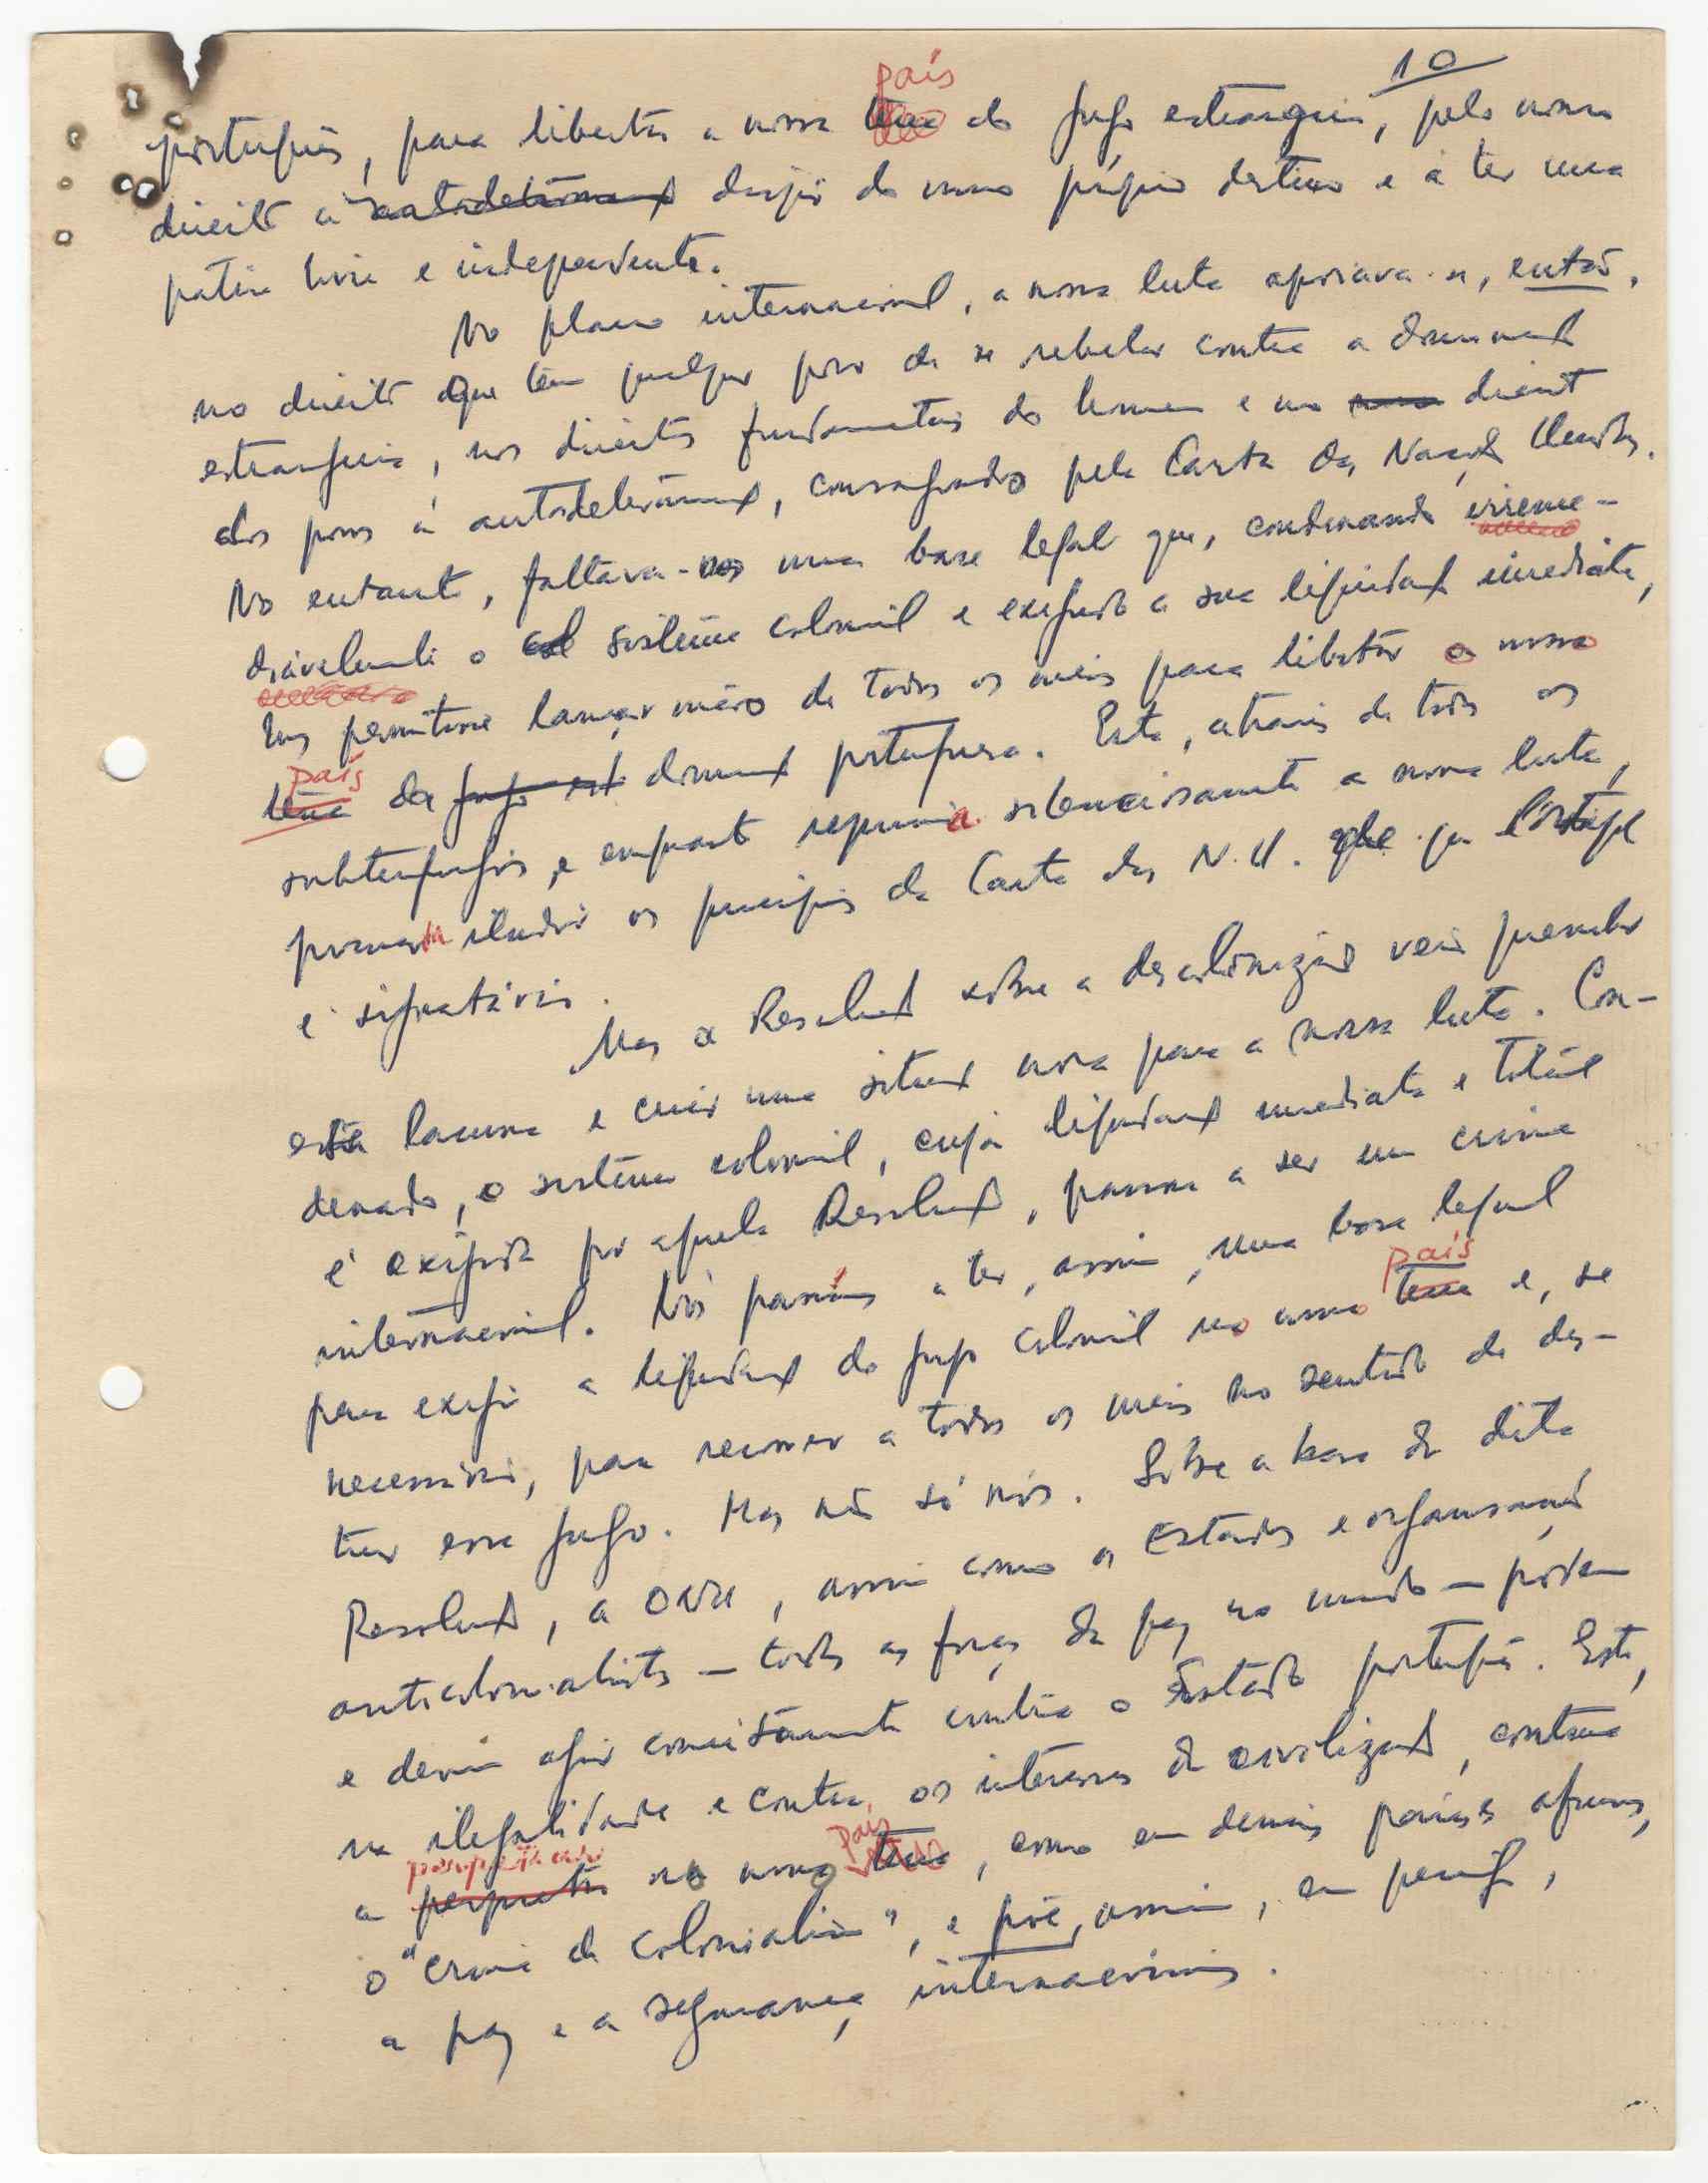 10
país
português, para libertar a nossa terra do jugo estrangeiro, pelo nosso
direito à autodeterminação do nosso próprio destino e a ter uma
pátria livre e independente.
No plano internacional, a nossa luta apoiava-se, então,
no direito que tem qualquer povo de se rebelar contra a dominação
estrangeira, nos direitos fundamentais do homem e no direito
dos povos à autodeterminação, consagrado pela Carta das Nações Unidas.
No entanto, faltava-nos uma base legal que, condenando irreme-
diàvelmente o sistema colonial e exigindo a sua liquidação imediata,
nos permitisse lançar mão de todos os meios para libertar o nosso
país
terra da jugo est dominação portuguesa. Esta, através de todos os
subterfúgios, e enquanto reprimia silenciosamente a nossa luta,
procurava iludir os princípios da Carta das N.U. que Portugal
é signatário.
Mas a Resolução sobre a descolonização veio preencher
esta lacuna e criar uma situação nova para a nossa luta. Con-
denado, o sistema colonial, cuja liquidação imediata e total
é exigida por aquela Resolução, passou a ser um crime
internacional. Nós passámos a ter, assim, uma base legal
país
para exigir a liquidação do jugo colonial no nosso terra e, se
necessário, para recorrer a todos os meios no sentido de des-
truir esse jugo. Mas não só nós. Sobre a base da dita
Resolução, a ONU, assim como os Estados e organizações
anticolonialistas — todas as forças da paz no mundo — podem
e devem agir concretamente contra o Estado português. Este,
na ilegalidade e contra os interesses da civilização, continua
país
a perpetrar no nosso terra, como em demais países africanos,
o "crime de colonialismo", e põe, assim, em perigo,
a paz e a segurança internacionais.